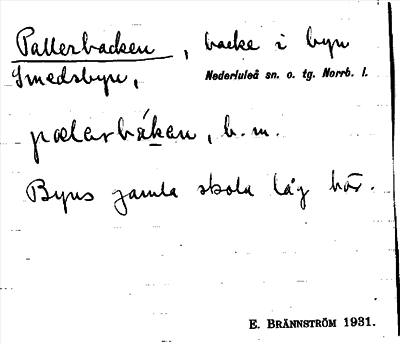 Pallerbacken, backe i byn
Smedsbyn, Nederluleå sn. o. tg. Norrb. l.
palerbáken, b. m.
Byns gamla skola låg här.
E. BRÄNNSTRÖM 1931.